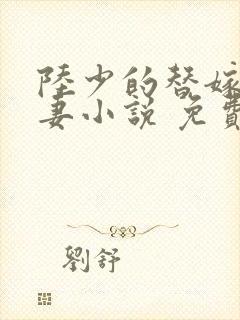 陸少的替嫁
妻小說 免費
劉舒